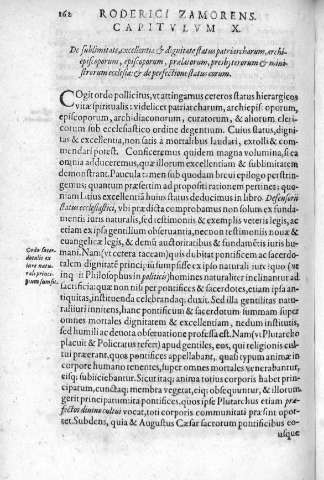 162 RODERICI ZAMORENS.
CAPITVLVM X.
De sublimitate, excellentia & dignitate status patriarcharum, archi-
episcoporum, episcoporum, prælatorum, presbyterorum & mini-
strorum ecclesiæ: & de perfectione status eorum.
COgit ordo pollicitus, vt attingamus ceteros status hierargicos
vitæ spiritualis: videlicet patriarcharum, archiepiscoporum,
episcoporum, archidiaconorum, curatorum, & aliorum cleri-
corum sub ecclesiastico ordine degentium. Cuius status, digni-
tas & excellentia, non satis à mortalibus laudari, extolli & com-
mendari potest. Conficeremus quidem magna volumina, si ea
omnia adduceremus, quæ illorum excellentiam & sublimitatem
demonstrant. Paucula tamen sub quodam breui epilogo perstrin-
gemus: quantum præsertim ad propositi rationem pertinet: quo-
niam latius excellentiā huius status deduximus in libro Defensorii
status ecclesiastici, vbi prædicta comprobamus non solum ex funda-
mentis iuris naturalis, sed testimoniis & exemplis veteris legis, ac
etiam ex ipsa gentilium obseruantia, necnon testimoniis nouæ &
euangelicæ legis, & demū auctoritatibus & fundamētis iuris hu-
mani. Nam (vt cetera taceam) quis dubitat pontificem ac sacerdo-
talem dignitatē principiū sumpsisse ex ipso naturali iure: quo (vt
inquit Philosophus in politicis) homines naturaliter inclinantur ad
sacrificia: quæ non nisi per pontifices & sacerdotes, etiam ipsa an-
tiquitas, instituenda celebrandaq; duxit. Sed illa gentilitas natu-
rali iuri innitens, hanc pontificum & sacerdotum summam super
omnes mortales dignitatem & excellentiam, nedum instituit,
sed humili ac deuota obseruatione professa est. Nam (vt Plutarcho
placuit & Policratus refert) apud gentiles, eos, qui religionis cul-
tui præerant, quos pontifices appellabant, quasi typum animæ in
corpore humano tenentes, super omnes mortales venerabantur,
eisq; subiiciebantur. Sicut itaq; anima totius corporis habet prin-
cipatum, cunctaq; membra vegetat, eiq; obsequuntur, & illorum
gerit principatum ita pontifices, quos ipse Plutarchus etiam præ-
fectos diuini cultus vocat, toti corporis communitati præsint opor-
tet. Subdens, quia & Augustus Cæsar sacrorum pontificibus eo-
usque
Ordo sacer-
dotalis ex
iure natu-
rali princi-
pium sumsit.